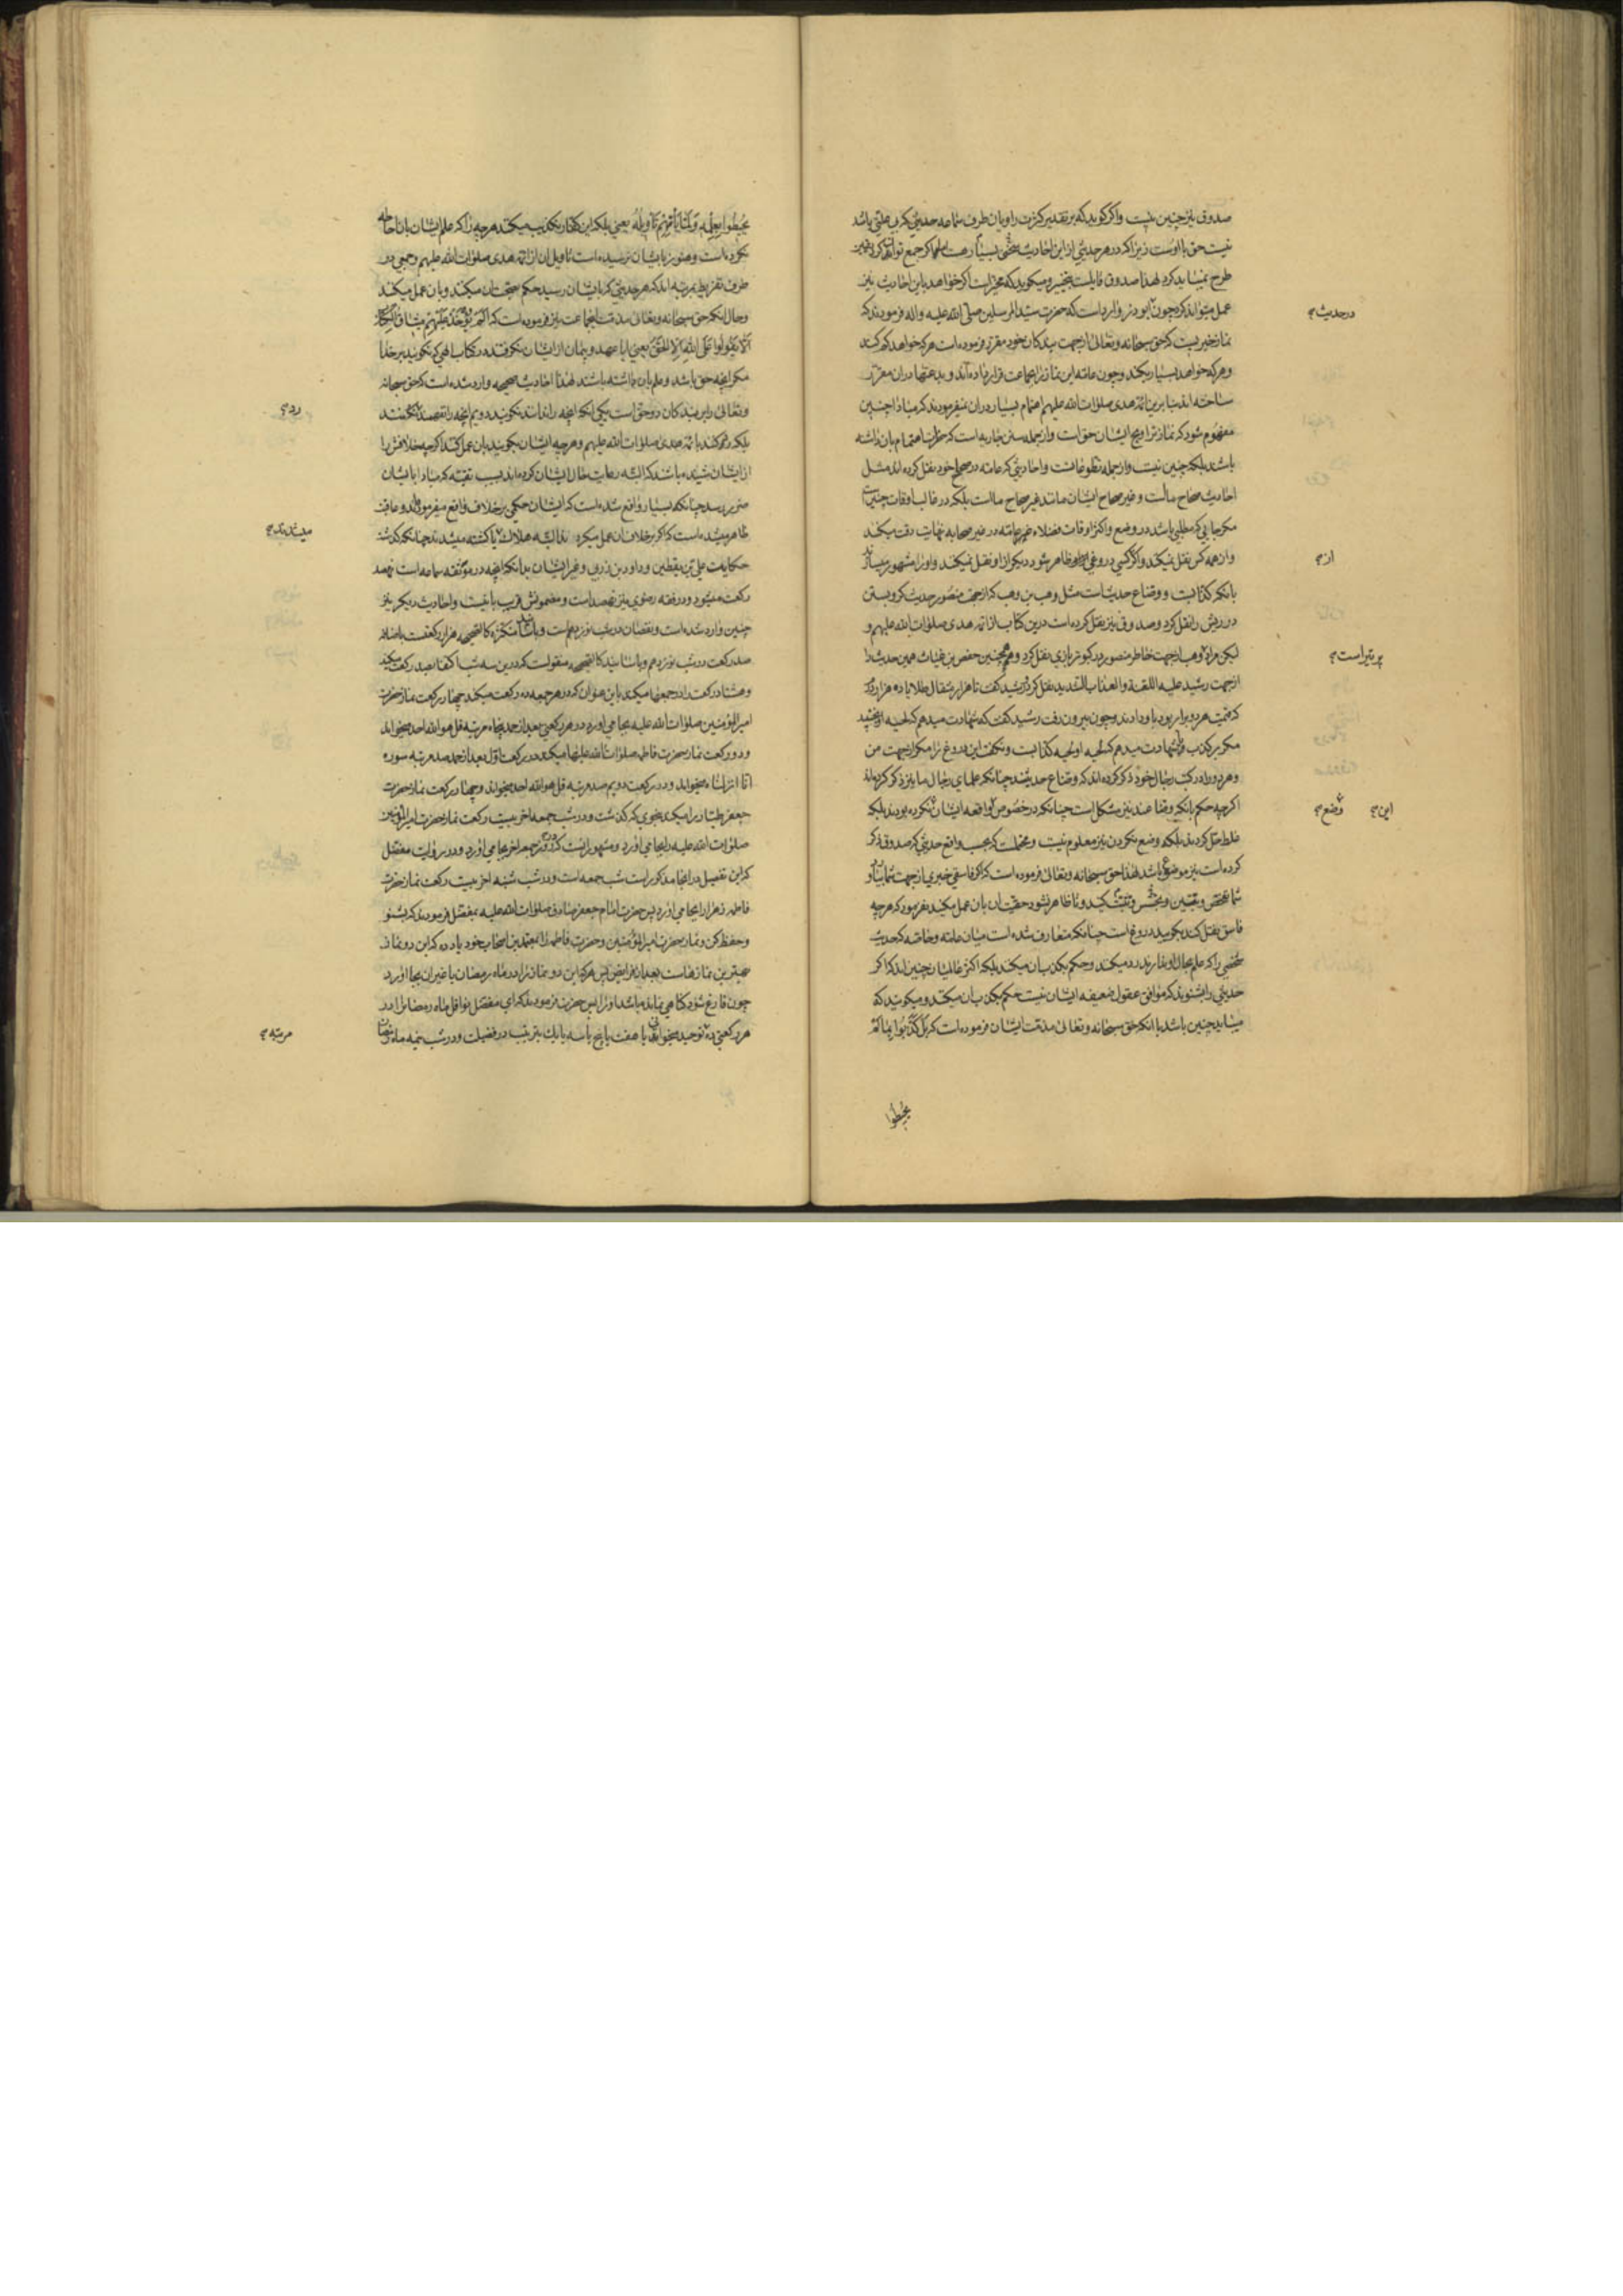 صدوق نیز چنین نیست واکر کوید که بر تقدیر کثرت راویان طرف سماعه حدیثی که بی علتی باشد
نیست حق با اوست زیرا که در هر حدیثی ازاین احادیث بسیار هست
طرح نمیشاید کرد لهذا صدوق قایلست بتخییر و میکوید که مخیر است اکر خواهد باین احادیث نیز
عمل میتواند کرد چون ابوذر وارد است که حضرت سید المرسلین صلی الله علیه واله فرمودند که
نماز خیریست که حق سبحانه وتعالی از جهت بندکان خود مقرر فرموده است هر که خواهد کم کند
وهر که خواهد بسیار بکند وچون عامه این نماز را بجماعت قرار داده‌اند و بدعتها دران مقرر
ساخته اند بنا برین ائمه هدی صلوات الله علیهم اهتمام بسیار دران نمیفرمودند که مبادا چنین
مفهوم شود که نماز تراویح ایشان حق است واز جمله سنن جاریه است که حضرت اهتمام بان داشته
باشند بلکه چنین نیست واز جمله تطوعاتست واحادیثی که عامه در صحاح خود نقل کرده اند مثل
احادیث صحاح ماست و غیر صحاح ایشان مانند غیر صحاح ماست بلکه در غالب اوقات چنین است
مکر جایی که مطلبی باشد در وضع واکثر اوقات فضلاء عامه در غیر صحابه نهایت دقت میکنند
واز همه کس نقل نمیکنند واکر کسی دروغی ازو ظاهر شود دیکر ازو نقل نمیکنند واورا مشهور میسازند
بانکه کذابست و وضاع حدیث است مثل وهب بن وهب که از جهت منصور حدیث کرو بستن
در ریش را نقل کرد وصدوق نیز نقل کرده است درین کتاب از ائمه هدی صلوات الله علیهم و
لیکن مراد وهب از جهت خاطر منصور در کبوتر بازی نقل کرد وهمچنین حفص بن غیاث همین حدیث را
از جهت رشید علیه اللعنة والعذاب الشدید نقل کرد رشید کفت تا هزار مثقال طلا یا ده هزار درم
که قیمت هر دو برابر بود باو دادند وچون بیرون رفت رشید کفت که شهادت میدهم که لحیه او
مکر بر کذب شهادت میدهم که لحیه او لحیه کذابست ونکفت این دروغ را مکر از جهت من
وهر دو را در کتب رجال خود ذکر کرده اند که وضاع حدیثند چنانکه علمای رجال ما نیز ذکر کرده‌اند
اکر چه حکم بانکه وضاعند نیز مشکل است چنانکه در خصوص واقعه ایشان نکرده بودند بلکه
غلط نقل کردند بلکه وضع نکردن نیز معلوم نیست ومحتملست که بحسب واقع حدیثی که صدوق ذکر
کرده است نیز موضوع باشد لهذا حق سبحانه وتعالی فرموده است که اکر فاسقی خبری از جهت شما بیاورد
شما تفحص و تجسس و تفتیش کنید وتا ظاهر نشود حقیت ان بان عمل مکنید نفرمود که هر چه
فاسق نقل کند بکویید دروغ است چنانکه متعارف شده است میان عامه وخاصه که حدیث
شخصی را که علم بحال او ندارند رد میکنند وحکم بکذب ان میکنند بلکه اکثر عالمیان چنین اند که اکر
حدیثی را بشنوند که موافق عقول ضعیفه ایشان نیست حکم بکذب ان میکنند و میکویند که
میباید چنین باشد با انکه حق سبحانه وتعالی مذمت ایشان فرموده است که بل کذبوا بما لم
یحیطوا
در حدیث
از
پر تیر است
این
وضع
یحیطوا بعلمه ولما یأتهم تأویله یعنی بلکه این کفار تکذیب میکنند هر چیز را که علم ایشان بان احاطه
نکرده است وهنوز بایشان نرسیده است تاویل ان از ائمه هدی صلوات الله علیهم وجمعی در
طرف تفریط بمرتبه اند که هر حدیثی که بایشان رسید حکم بصحت ان میکنند و بان عمل میکنند
وحال انکه حق سبحانه وتعالی مذمت انجماعت نیز فرموده است که الم یؤخذ علیهم میثاق الکتاب
ان لا یقولوا علی الله الا الحق یعنی ایا عهد و پیمان از ایشان نکرفتند در کتاب الهی که نکویند بر خدا
مکر انچه حق باشد و علم بان داشته باشند لهذا احادیث صحیحه وارد شده است که حق سبحانه
وتعالی را بر بندکان دو حق است یکی انکه انچه را ندانند نکویند دویم انچه را نفهمند نکنند
بلکه رد کنند بائمه هدی صلوات الله علیهم وهر چه ایشان بکویند بان عمل کنند اکر چه خلافش را
از ایشان شنیده باشند که البته رعایت حال ایشان کرده‌اند بسبب تقیه که مبادا بایشان
ضرر برسد چنانکه بسیار واقع شده است که ایشان حکمی بر خلاف واقع میفرمودند و عاقبت
ظاهر میشده است که اکر بر خلاف ان عمل میکردند البته هلاک یا کشته میشدند چنانکه کذشت
حکایت علی بن یقطین وداود بن زربی وغیر ایشان بدانکه انچه در موثقه سماعه است نهصد
رکعت میشود ودر فقه رضوی نیز نهصد است و مضمونش قریب باینست واحادیث دیکر نیز
چنین وارد شده است ونقصان در شب نوزدهم است وباسانید متکثره کالصحیحه هزار رکعتست باضافه
صد رکعت در شب نوزدهم وباسانید کالصحیحه منقولست که در این سه شب اکتفا بصد رکعت میکند
وهشتاد رکعت را در جمعها میکند باین عنوان که در هر جمعه ده رکعت میکند چهار رکعت نماز حضرت
امیر المؤمنین صلوات الله علیه بجا می اورد در هر رکعتی بعد از حمد پنجاه مرتبه قل هو الله احد میخواند
ودو رکعت نماز حضرت فاطمه صلوات الله علیها میکند در رکعت اول بعد از حمد صد مرتبه سوره
انا انزلناه میخواند ودر رکعت دویم صد مرتبه قل هو الله احد میخواند وچهار رکعت نماز حضرت
جعفر طیار را میکند بنحوی که کذشت ودر شب جمعه اخر بیست رکعت نماز حضرت امیر المؤمنین
صلوات الله علیه را بجا می اورد ومشهور انست که در روز جمعه اخر بجا می اورد ودر روایت مفضل
که این تفصیل در انجا مذکور است شب جمعه است ودر شب شنبه اخر بیست رکعت نماز حضرت
فاطمه زهرا را بجا می اورد پس حضرت امام جعفر صادق صلوات الله علیه بمفضل فرمودند که بشنو
وحفظ کن ونماز حضرت امیر المؤمنین وحضرت فاطمه را بمعتمدین اصحاب خود یاد ده که این دو نماز
بهترین نمازهاست بعد از فرایض پس هر که این دو نماز را در ماه رمضان یا غیر ان بجا اورد
چون فارغ شود کناهی نمانده باشد اورا پس حضرت فرمودند که ای مفضل نوافل ماه رمضان را در
هر رکعتی ده توحید میخوانی یا هفت یا پنج یا سه یا یک بترتیب در فضیلت ودر شب نیمه ماه رمضان
رد
میشدند
مرتبه